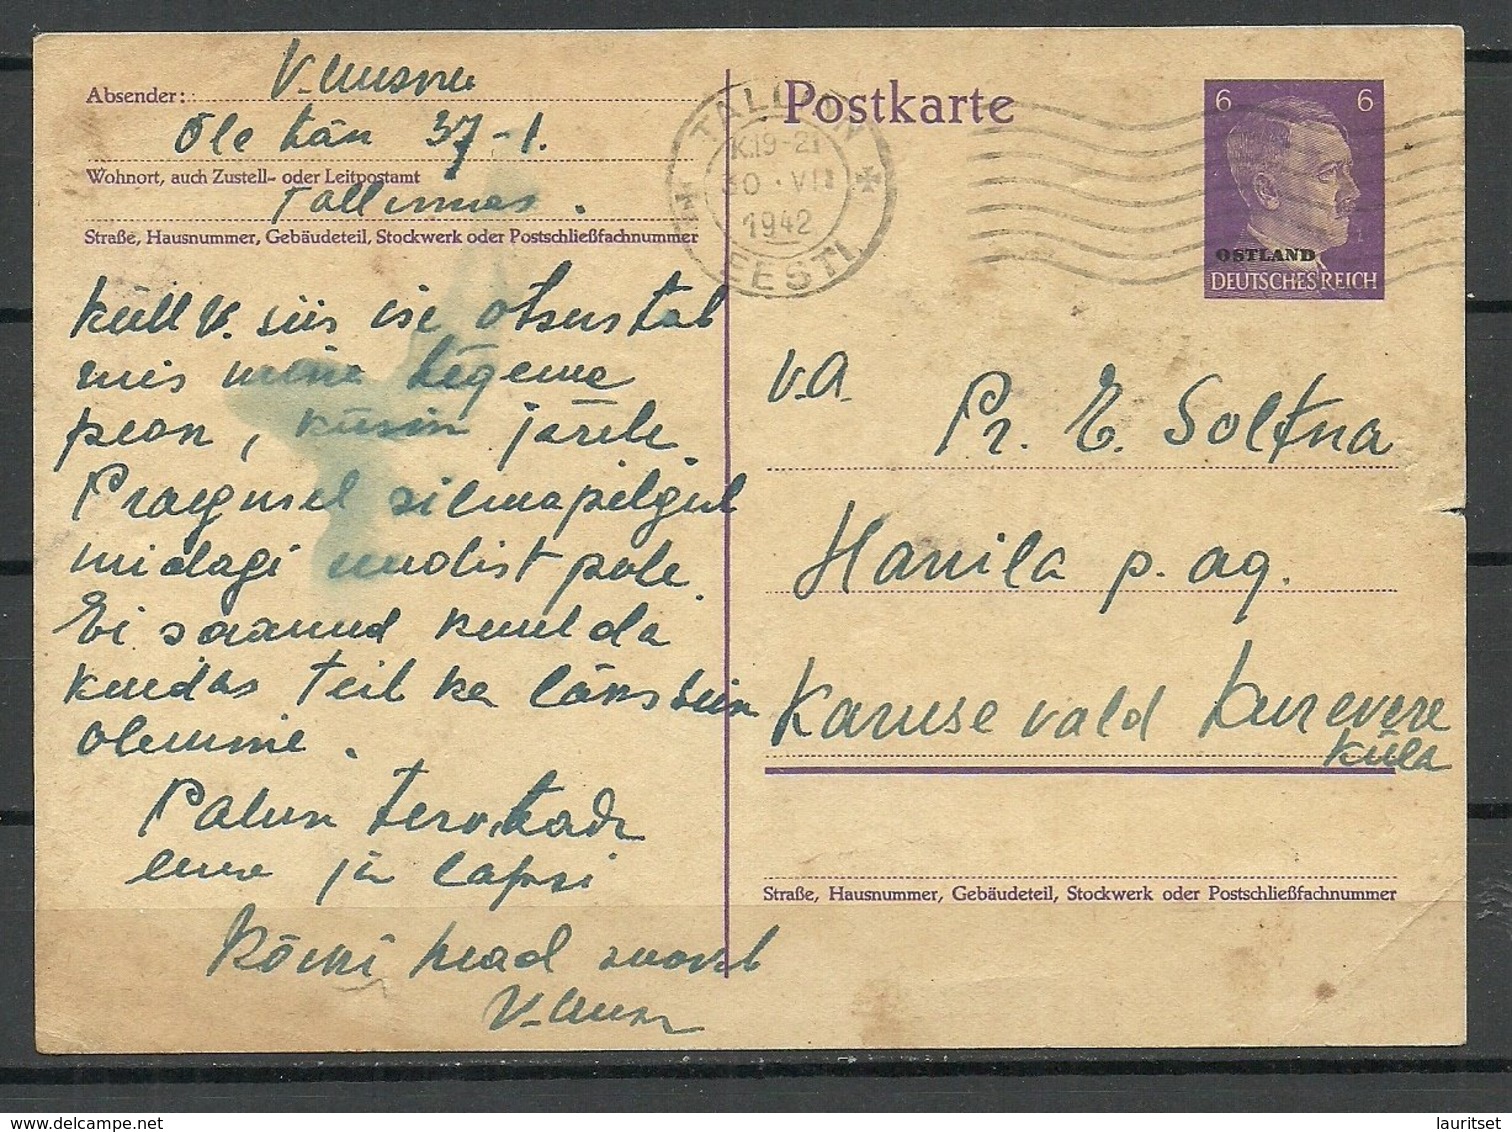 Absender:
Ole tän 37-1.
Wohnort, auch Zustell- oder Leitpostamt
Tallinnas.
Straße, Hausnummer, Gebäudeteil, Stockwerk oder Postschließfachnummer
Küll V. siis ise otsustab
mis mina tegema
pean, küsin järele.
Praegusel silmapilgul
midagi uudist pole.
Ei saanud kuulda
kuidas teil ka läks siin
olemine.
Palun tervitada
ema ja lapsi
Kõike head soovib
TALLINN
K.19-21
30.VII
1942
EESTI
Postkarte
6 6
OSTLAND
DEUTSCHES REICH
v.a.
Pr. E. Soltsna
Hanila p. ag.
Karuse vald Kurevere
küla
Straße, Hausnummer, Gebäudeteil, Stockwerk oder Postschließfachnummer
lauritset